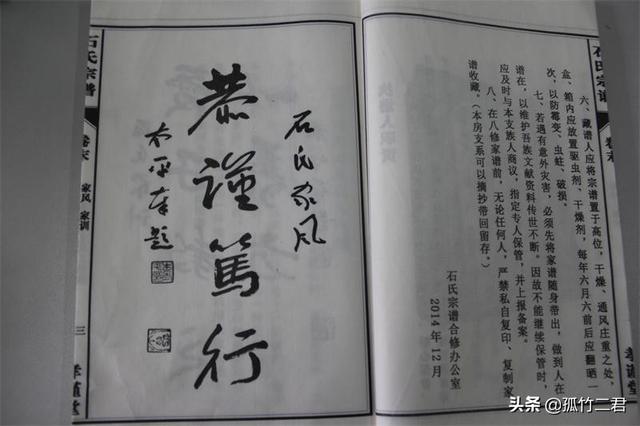 石氏宗谱
卷末
孝谨堂
六、藏谱人应将宗谱置于高位，干燥、通风庄重之处，
盒、箱内应放置驱虫剂、干燥剂，每年六月六前后应翻晒一
次，以防霉变、虫蛀、破损。
七、若遇有意外灾害，必须先将家谱随身带出，做到人在
谱在，以维护吾族文献资料传世不断。因故不能继续保管时，
应及时与本支族人商议，指定专人保管，并上报备案。
八、在八修家谱前，无论任何人，严禁私自复印、复制家
谱收藏。（本房支系可以摘抄带回留存。）
石氏宗谱合修办公室
2014年12月
石氏家风
恭谨篤行
太平李题
石氏宗谱
卷末
家风 家训
三
孝谨堂
头条 @孤竹二君